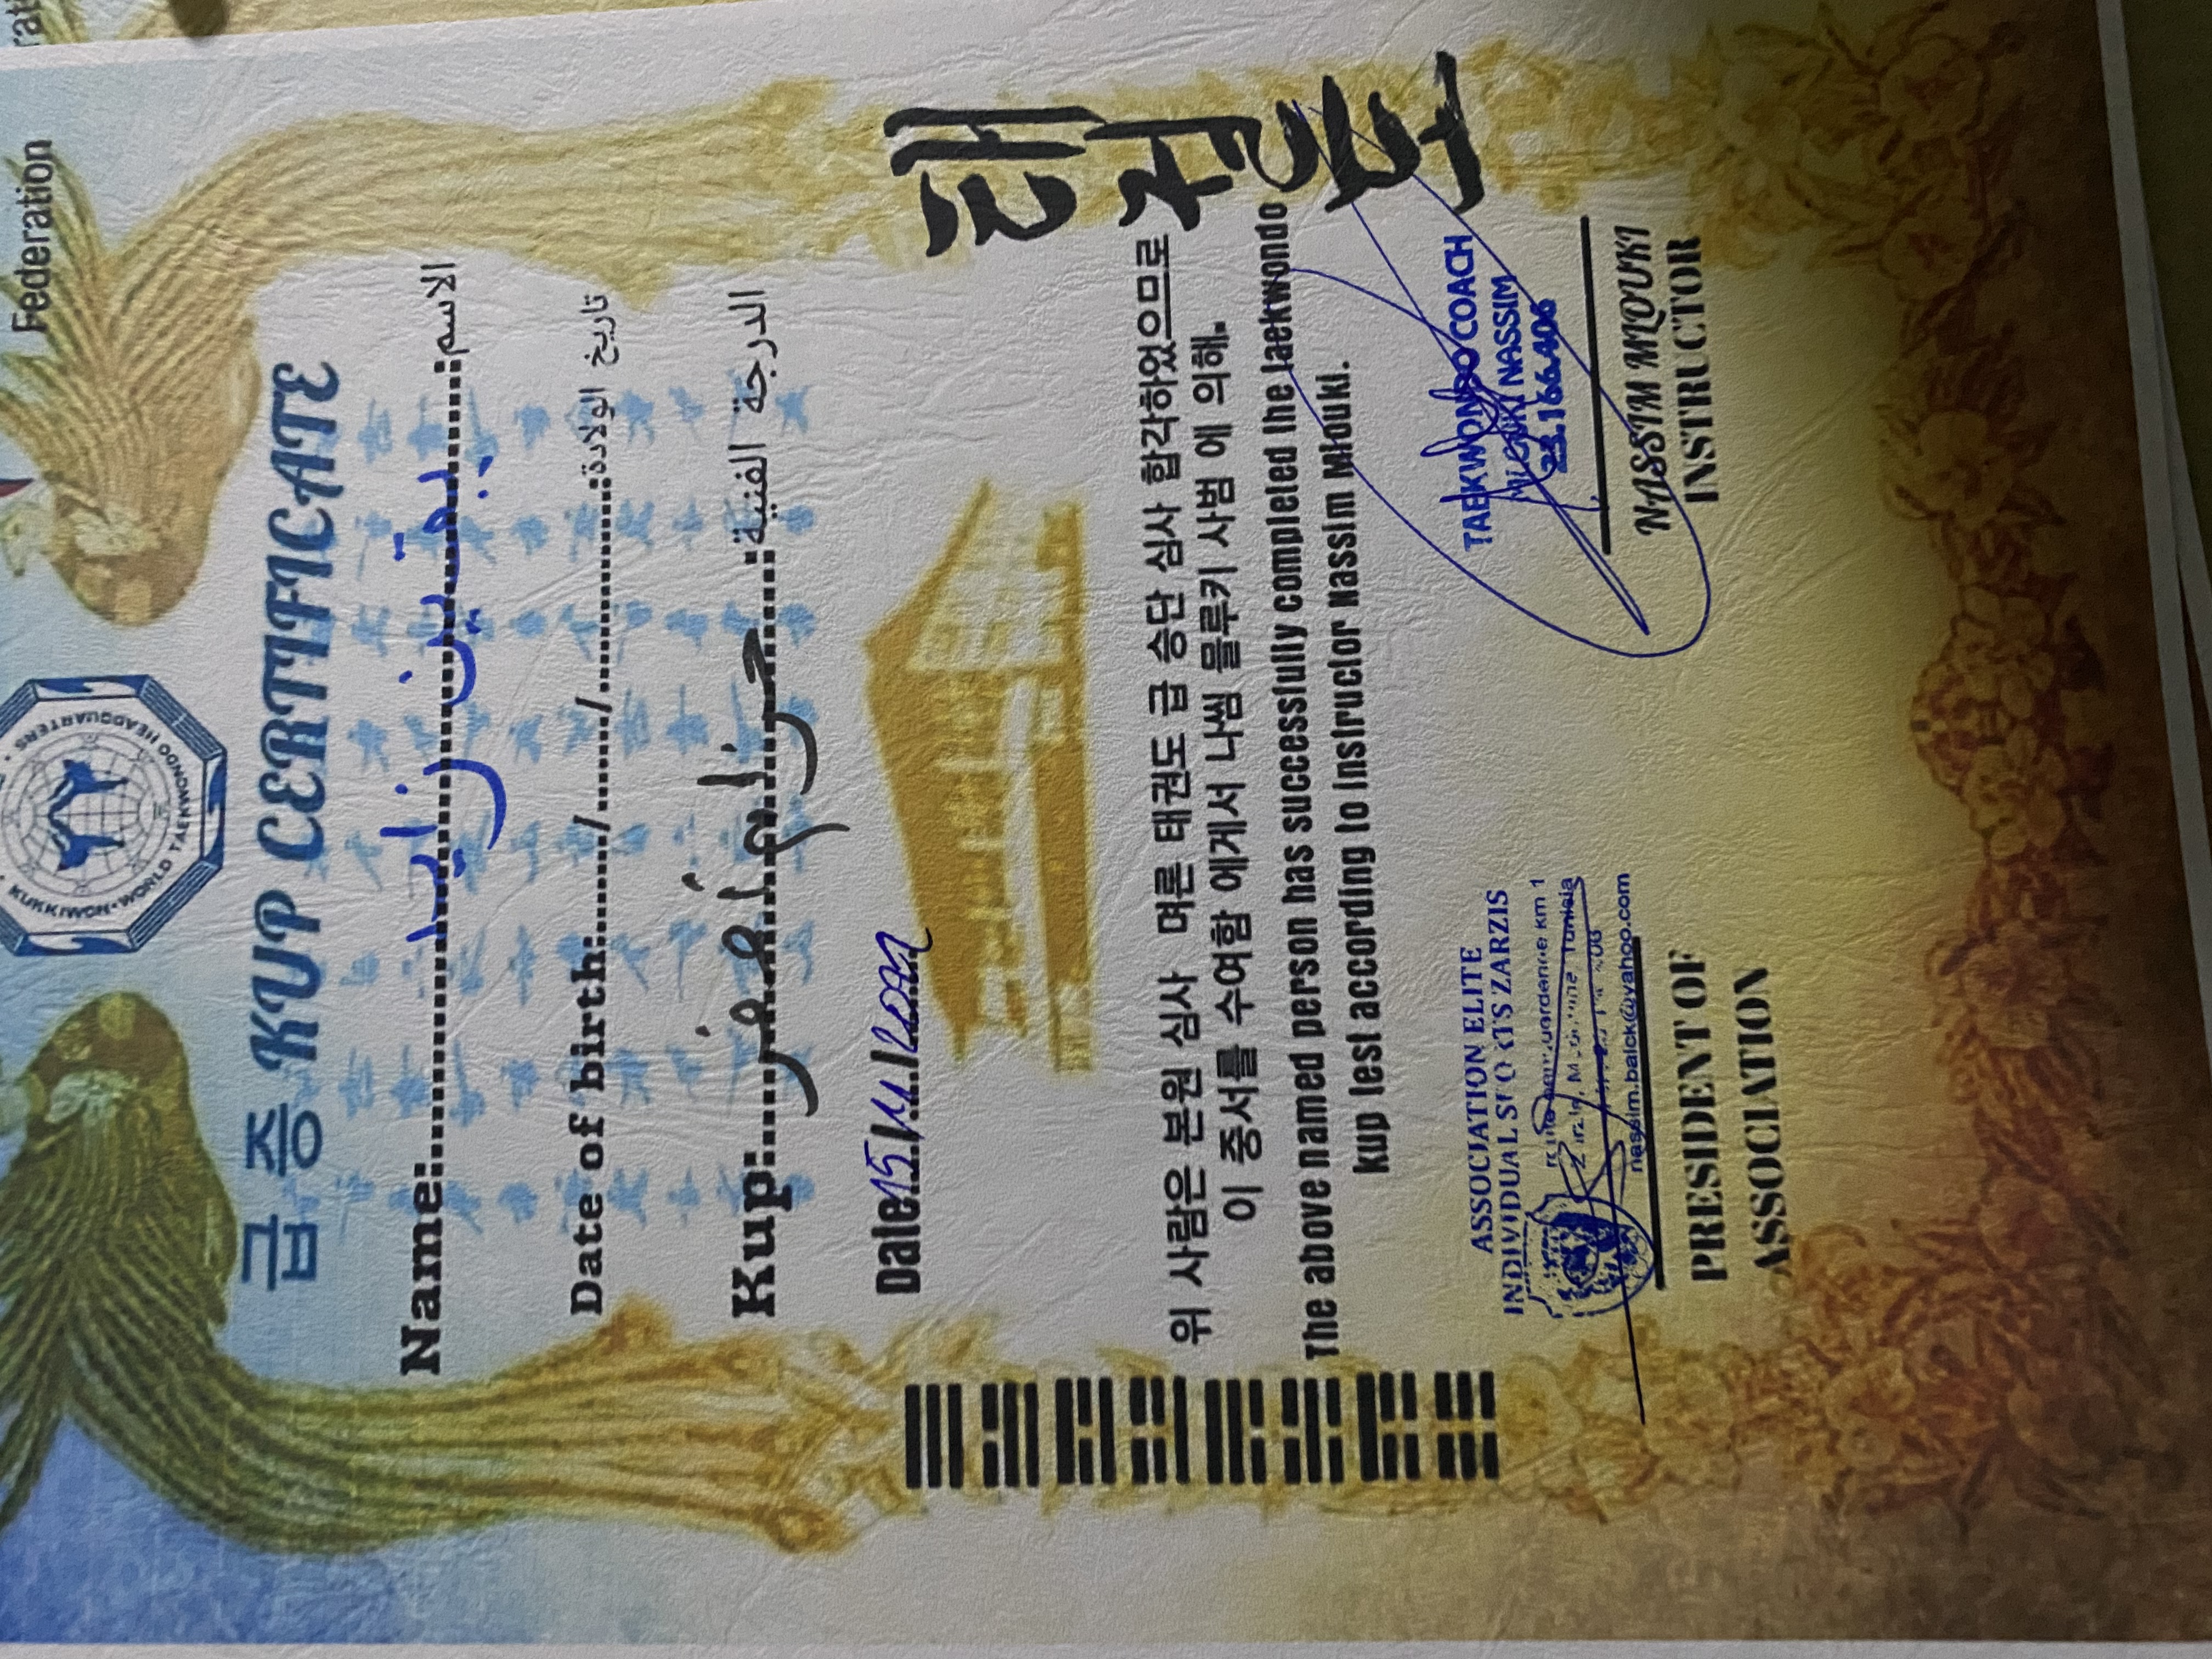 Federation
KUKKIWON • WORLD TAEKWONDO HEADQUARTERS •
급 증 KUP CERTIFICATE
Name:............يقين زايد............:الاسم
Date of birth:......../......../........:تاريخ الولادة
Kup:............حزام أصفر............:الدرجة الفنية
Date:15/
태권도
위 사람은 본원 심사 며론 태권도 급 승단 심사 합각하었으므로
이 증서를 수여함 에게서 나씸 믈루키 사범 에 의해.
The above named person has successfully completed the Taekwondo
kup test according to instructor Nassim Mlouki.
ASSOCIATION ELITE
INDIVIDUAL SPORTS ZARZIS
km 1
Tunisia
nassim.balck@yahoo.com
PRESIDENT OF
ASSOCIATION
TAEKWONDO COACH
MLOUKI NASSIM
23.166.406
NASSIM MLOUKI
INSTRUCTOR